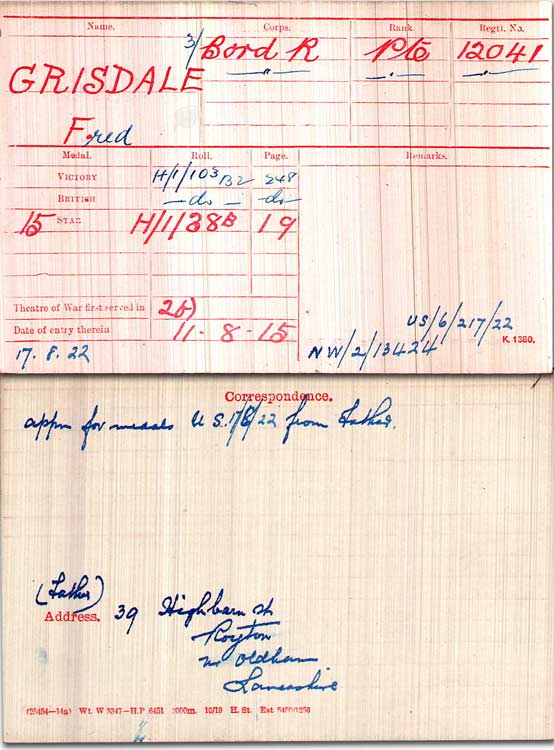 Name. Corps. Rank. Regtl. No.
3/ Bord R Pte 12041
GRISDALE
Fred
Medal. Roll. Page. Remarks.
VICTORY H/1/103 B2 248
BRITISH —do— —do—
15 STAR H/1/38B 19
Theatre of War first served in 2B)
Date of entry therein 11-8-15
US/6/217/22
K. 1380.
17.8.22 NW/2/13424
Correspondence.
appn for medals U S. 22 from Father.
(Father)
Address. 39 Highbarn St
Royton
nr Oldham
Lancashire
Wt. W 3347—H.P. 6451 2000m. 10/19 H. St.